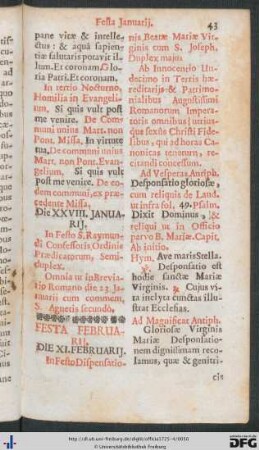 Festa Januarii.
43
pane vitæ & intelle-
ctus: & aquâ sapien-
tiæ salutaris potavit il-
lum. Et coronam. Glo-
ria Patri. Et coronam.
In tertio Nocturno,
Homilia in Evangeli-
um, Si quis vult post
me venire. De Com-
muni unius Mart. non
Pont. Missa, In virtute
tua, De communi unius
Mart. non Pont. Evan-
gelium, Si quis vult
post me venire. De eo-
dem communi, ex præ-
cedente Missa.
Die XXVIII. JANUA-
RIJ.
In Festo S. Raymun-
di Confessoris, Ordinis
Prædicatorum, Semi-
duplex.
Omnia ut in Brevia-
rio Romano die 23. Ja-
nuarii cum commem.
S. Agnetis secundò.
FESTA FEBRUA-
RIJ.
DIE XI. FEBRUARIJ.
In Festo Desponsatio-
nis Beatæ Mariæ Vir-
ginis cum S. Joseph,
Duplex majus.
Ab Innocentio Un-
decimo in Terris hæ-
reditariis & Patrimo-
nialibus Augustissimi
Romanorum Impera-
toris omnibus utriusq;
que sexûs Christi Fide-
libus, qui ad horas Ca-
nonicas tenentur, re-
citandi concessum.
Ad Vesperas, Antiph.
Desponsatio gloriosæ,
cum reliquis de Laud.
ut infra fol. 49. Psalm.
Dixit Dominus, &
reliqui ut in Officio
parvo B. Mariæ. Capit.
Ab initio.
Hym. Ave maris Stella.
℣. Desponsatio est
hodie sanctæ Mariæ
Virginis. ℟. Cujus vi-
ta inclyta cunctas illu-
strat Ecclesias.
Ad Magnificat Antiph.
Gloriosæ Virginis
Mariæ Desponsatio-
nem dignissimam reco-
lamus, quæ & genitri-
cis
http://dl.ub.uni-freiburg.de/diglit/officia1725-4/0036
© Universitätsbibliothek Freiburg
gefördert durch die
DFG